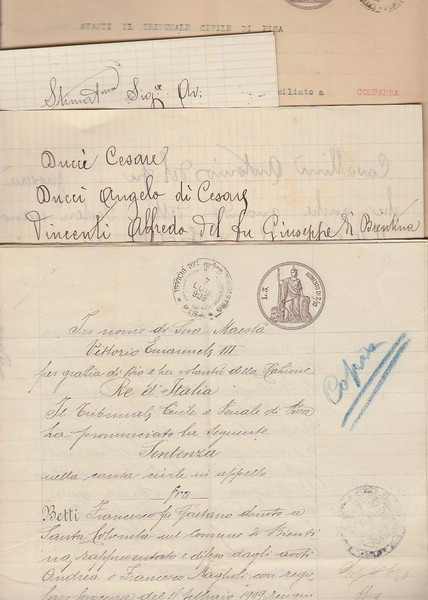 AVANTI IL TRIBUNALE CIVILE DI PISA
ciliato a COMPARSA
Stimat.mo Sig.re Av:
Duccè Cesare
Ducci Angelo di Cesare
Vincenti Alfredo del fu Giuseppe di Brentina
UFFICIO DEL
LUG
909
PISA
L. 3
AUMENTO DI 2/10
In nome di Sua Maestà
Vittorio Emanuele III
per grazia di Dio e per volontà della Nazione
Re d'Italia
Copia
Il Tribunale Civile e Penale di Pisa
ha pronunciato la seguente
Sentenza
nella causa civile in appello
fra
Betti Francesco fu Gaetano domto a
Santa Colomba nel comune di Bienti
na rappresentato e difeso dagli avvti
Andrea e Francesco con rego
febbraio 1909